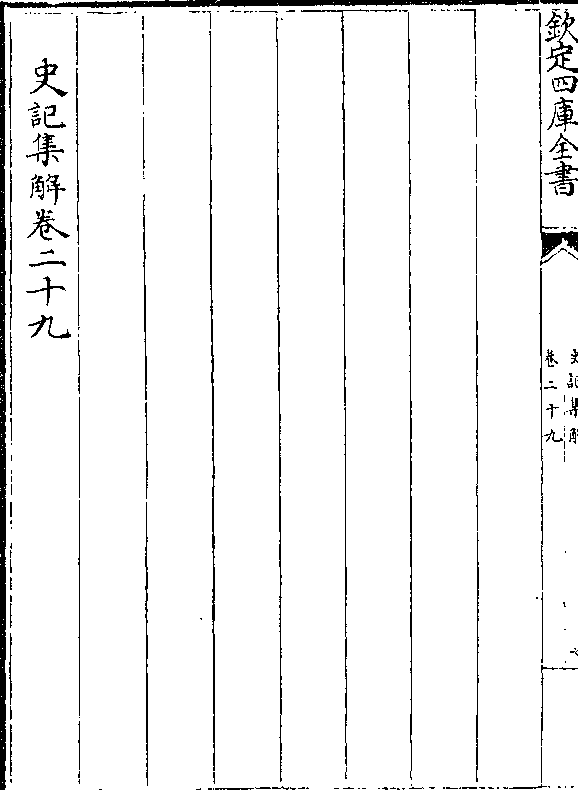 欽定四庫全書
史記集解
卷二十九
史記集解卷二十九